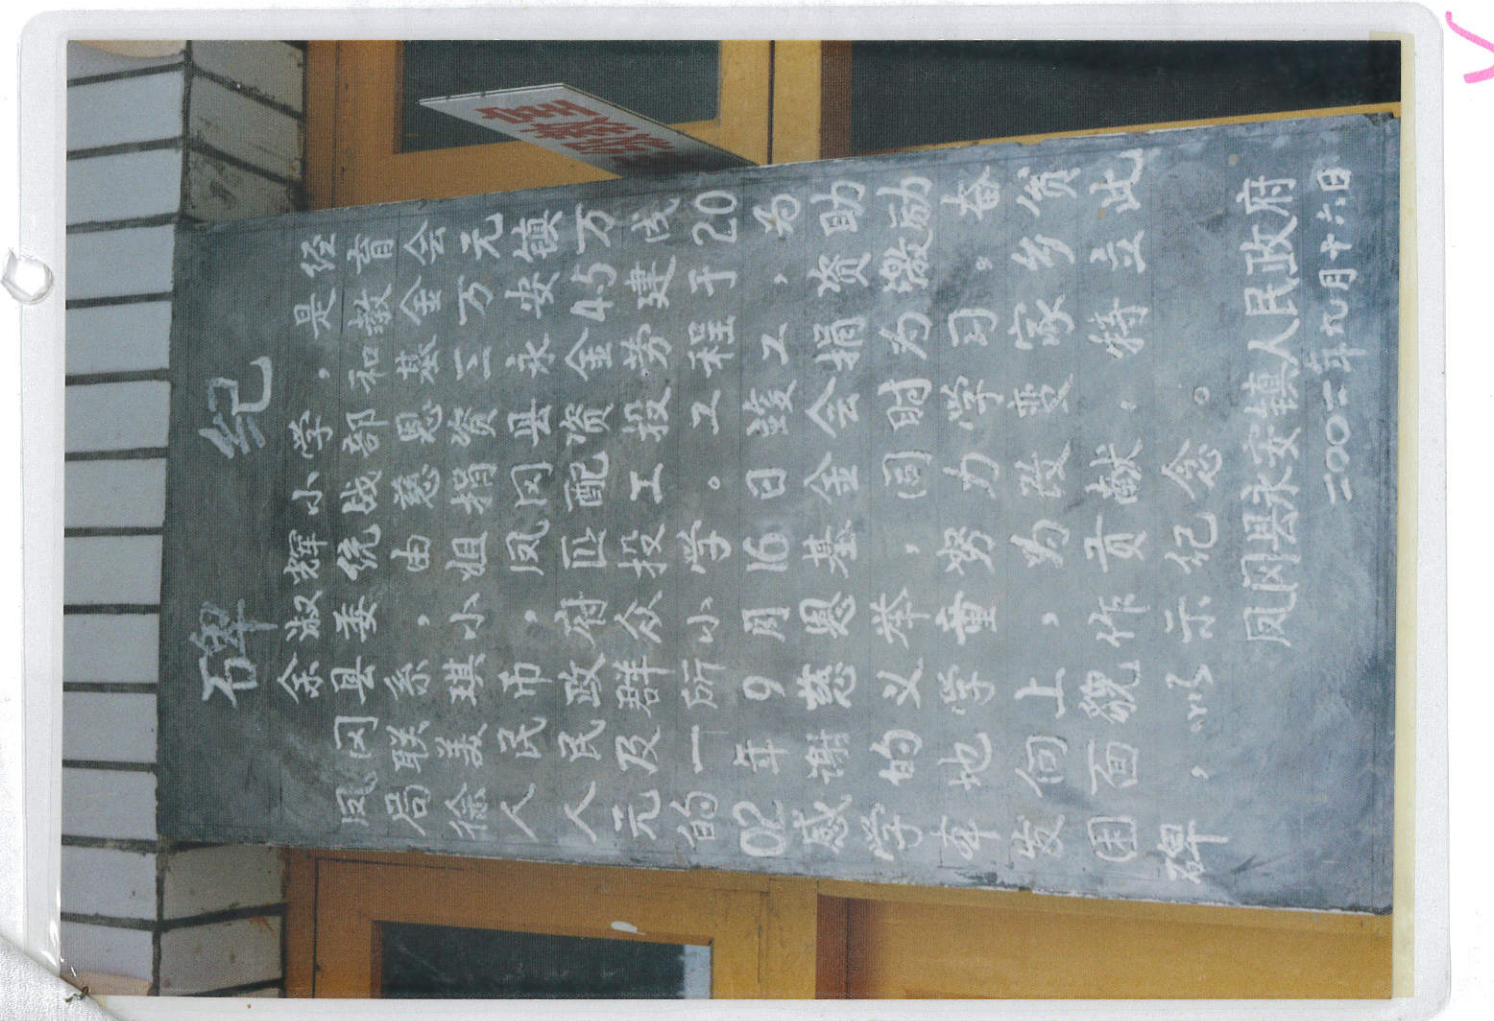 碑 纪
余淑辉小学，是经
凤冈县委统战部和教育
局联系，由慈恩基金会
徐美琪小姐捐资三万元
人民币，凤冈县永安镇
人民政府匹配资金45万
元及群众投工投劳建成
的一所小学。工程于20
02年9月16日竣工，为
感谢慈恩基金会捐资助
学的义举，同时为激励
地学童努力学习。奋
发向上，为改变家乡贫
困面貌作贡献，特立此
碑，以示纪念。
凤冈县永安镇人民政府
二00二年九月十六日